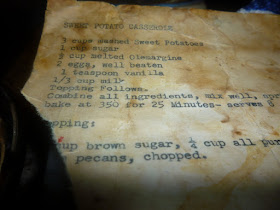 SWEET POTATO CASSEROLE
3 cups mashed Sweet Potatoes
1 cup sugar
½ cup melted Oleomargine
2 eggs, well beaten
1 teaspoon vanilla
1/3 cup milk
Topping Follows.
Combine all ingredients, mix well,
bake at 350 for 25 Minutes- serves
pping:
cup brown sugar, ¼ cup all pur
pecans, chopped.